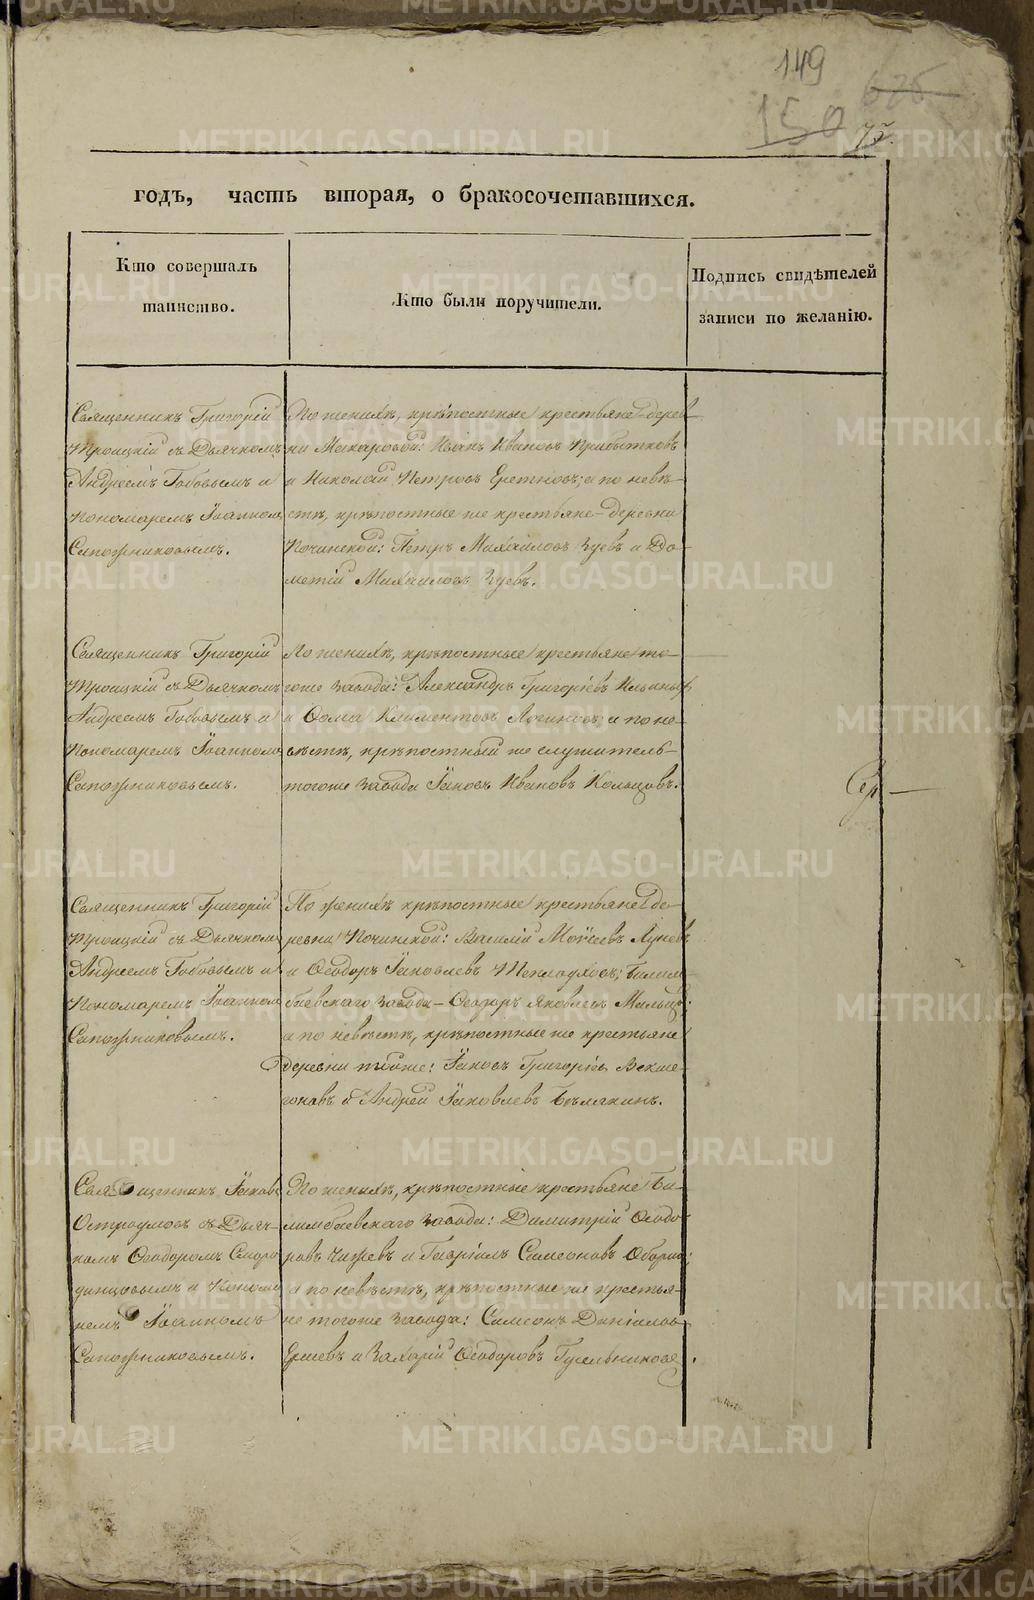 149
150
626
75
годъ, часть вторая, о бракосочетавшихся.
Кто совершалъ
таинство.
Кто были поручители.
Подпись свидѣтелей
записи по желанію.
Священникъ Григорій
Троицкій съ Дьячкомъ
Андреемъ Бобовымъ и
Пономаремъ Іоанномъ
Сапожниковымъ.
По женихѣ, крѣпостные крестьяне дерев
ни Макаровой: Иванъ Ивановъ Прибытковъ
и Николай Петровъ Еретновъ; а по невѣ-
стѣ, крѣпостные же крестьяне деревни
Починской: Петръ Михаиловъ Зуевъ и До-
метій Михаиловъ Зуевъ.
Священникъ Григорій
Троицкій съ Дьячкомъ
Андреемъ Бобовымъ и
Пономаремъ Іоанномъ
Сапожниковымъ.
По женихѣ, крѣпостные крестьяне то-
гоже завода: Александръ Григоріевъ Ильиныхъ
и Ѳома Климентовъ Логиновъ; а по не-
вѣстѣ, крѣпостный же служитель
тогоже завода Іаковъ Ивановъ Кольцовъ.
Сер
Священникъ Григорій
Троицкій съ Дьячкомъ
Андреемъ Бобовымъ и
Пономаремъ Іоанномъ
Сапожниковымъ.
По женихѣ крѣпостные крестьяне де-
ревни Починской: Василій Моѵсеевъ Луневъ
и Ѳеодоръ Іаковлевъ Билим-
баевскаго завода Ѳеодоръ Яковлевъ
а по невѣстѣ, крѣпостные же крестьяне
деревни тойже: Іаковъ Григоріевъ Векше-
гоновъ и Андрей Іаковлевъ Бѣлякинъ.
Священникъ Іаковъ
Остроумовъ съ Дьяч-
комъ Ѳеодоромъ Сморо
динцовымъ и Понома
ремъ Іоанномъ
Сапожниковымъ.
По женихѣ, крѣпостные крестьяне Би-
лимбаевскаго завода: Димитрій Ѳеодо-
ровъ Чижевъ и Гавріилъ Симеоновъ
а по невѣстѣ, крѣпостные же крестья-
не тогоже завода: Симеонъ Даніиловъ
Ершевъ и Захарій Ѳеодоровъ Гусельниковъ.
METRIKI.GASO-URAL.RU